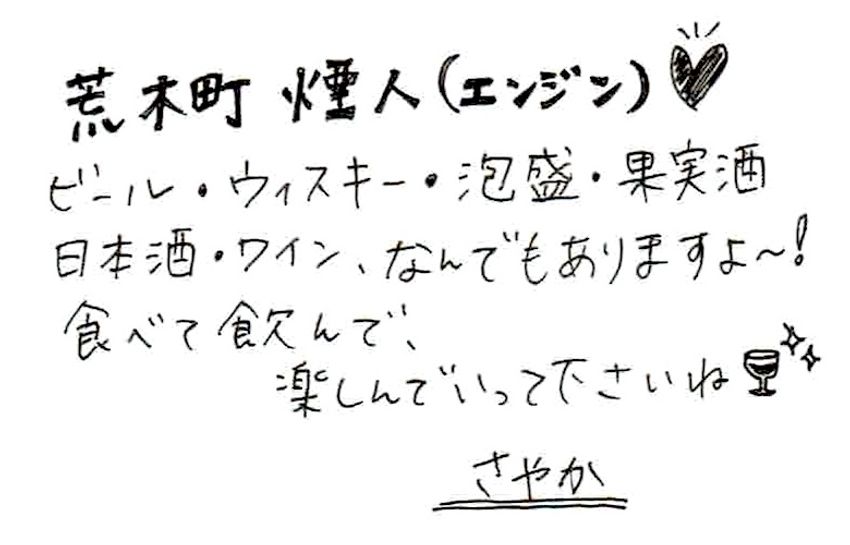 荒木町 煙人(エンジン)
ビール・ウィスキー・泡盛・果実酒
日本酒・ワイン、なんでもありますよ〜!
食べて飲んで、
楽しんでいって下さいね
さやか